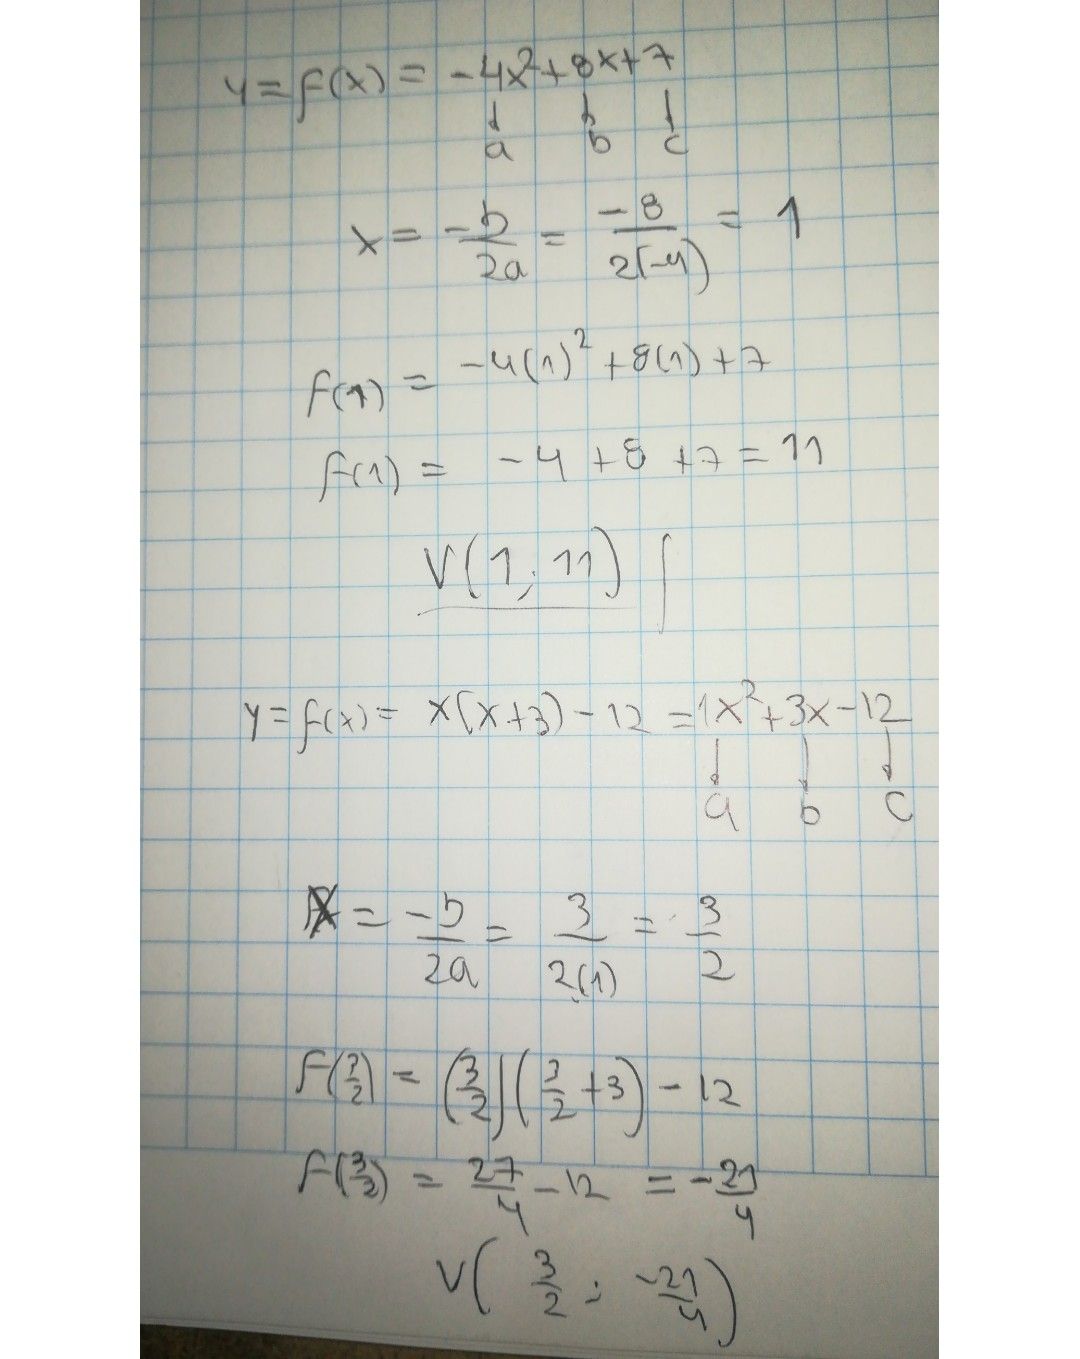 y = f(x) = -4x²+8x+7
a b c
x = -b/2a = -8/2(-4) = 1
f(1) = -4(1)²+8(1)+7
f(1) = -4+8+7=11
V(1; 11)
y=f(x)= x(x+3)-12 =1x²+3x-12
a b c
X = -b/2a = 3/2(1) = 3/2
f(3/2) = (3/2)(3/2+3)-12
f(3/2) = 27/4-12 = -21/4
V(3/2; -21/4)